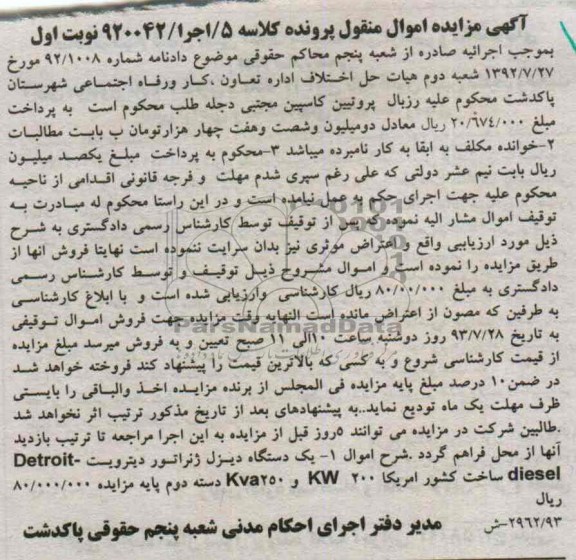 آگهی مزایده اموال منقول پرونده کلاسه ۵/اجرا/۹۲۰۰۴۲ نوبت اول
بموجب اجرائیه صادره از شعبه پنجم محاکم حقوقی موضوع دادنامه شماره ۹۲/۱۰۰۸ مورخ
۱۳۹۲/۷/۲۷ شعبه دوم هیات حل اختلاف اداره تعاون ،کار ورفاه اجتماعی شهرستان
پاکدشت محکوم علیه رزبال پروتیین کاسپین مجتبی دجله طلب محکوم است به پرداخت
مبلغ ۲۰/۶۷۴/۰۰۰ ریال معادل دومیلیون وشصت وهفت چهار هزارتومان ب بابت مطالبات
۲-خوانده مکلف به ابقا به کار نامبرده میباشد ۳-محکوم به پرداخت مبلغ یکصد میلیون
ریال بابت نیم عشر دولتی که علی رغم سپری شدم مهلت و فرجه قانونی اقدامی از ناحیه
محکوم علیه جهت اجرای حکم به عمل نیامده است و در این راستا محکوم له مبادرت به
توقیف اموال مشار الیه نموده که پس از توقیف توسط کارشناس رسمی دادگستری به شرح
ذیل مورد ارزیابی واقع و اعتراض موثری نیز بدان سرایت ننموده است نهایتا فروش آنها از
طریق مزایده را نموده است و اموال مشروح ذیل توقیف و توسط کارشناس رسمی
دادگستری به مبلغ ۸۰/۰۰/۰۰۰ ریال کارشناسی وارزیابی شده است و با ابلاغ کارشناسی
به طرفین که مصون از اعتراض مانده است النهایه وقت مزایده جهت فروش اموال توقیفی
به تاریخ ۹۳/۷/۲۸ روز دوشنبه ساعت ۱۰الی ۱۱ صبح تعیین و به فروش میرسد مبلغ مزایده
از قیمت کارشناسی شروع و به کسی که بالاترین قیمت را پیشنهاد کند فروخته خواهد شد
در ضمن۱۰ درصد مبلغ پایه مزایده فی المجلس از برنده مزایده اخذ والباقی را بایستی
ظرف مهلت یک ماه تودیع نماید..به پیشنهادهای بعد از تاریخ مذکور ترتیب اثر نخواهد شد
.طالبین شرکت در مزایده می توانند ۵روز قبل از مزایده به این اجرا مراجعه تا ترتیب بازدید
آنها از محل فراهم گردد .شرح اموال ۱- یک دستگاه دیزل ژنراتور دیترویت Detroit-
diesel ساخت کشور امریکا ۲۰۰ KW و Kva۲۵۰ دسته دوم پایه مزایده ۸۰/۰۰۰/۰۰۰
ریال
۲۹۶۲/۹۳-ش مدیر دفتر اجرای احکام مدنی شعبه پنجم حقوقی پاکدشت
ParsNamadData